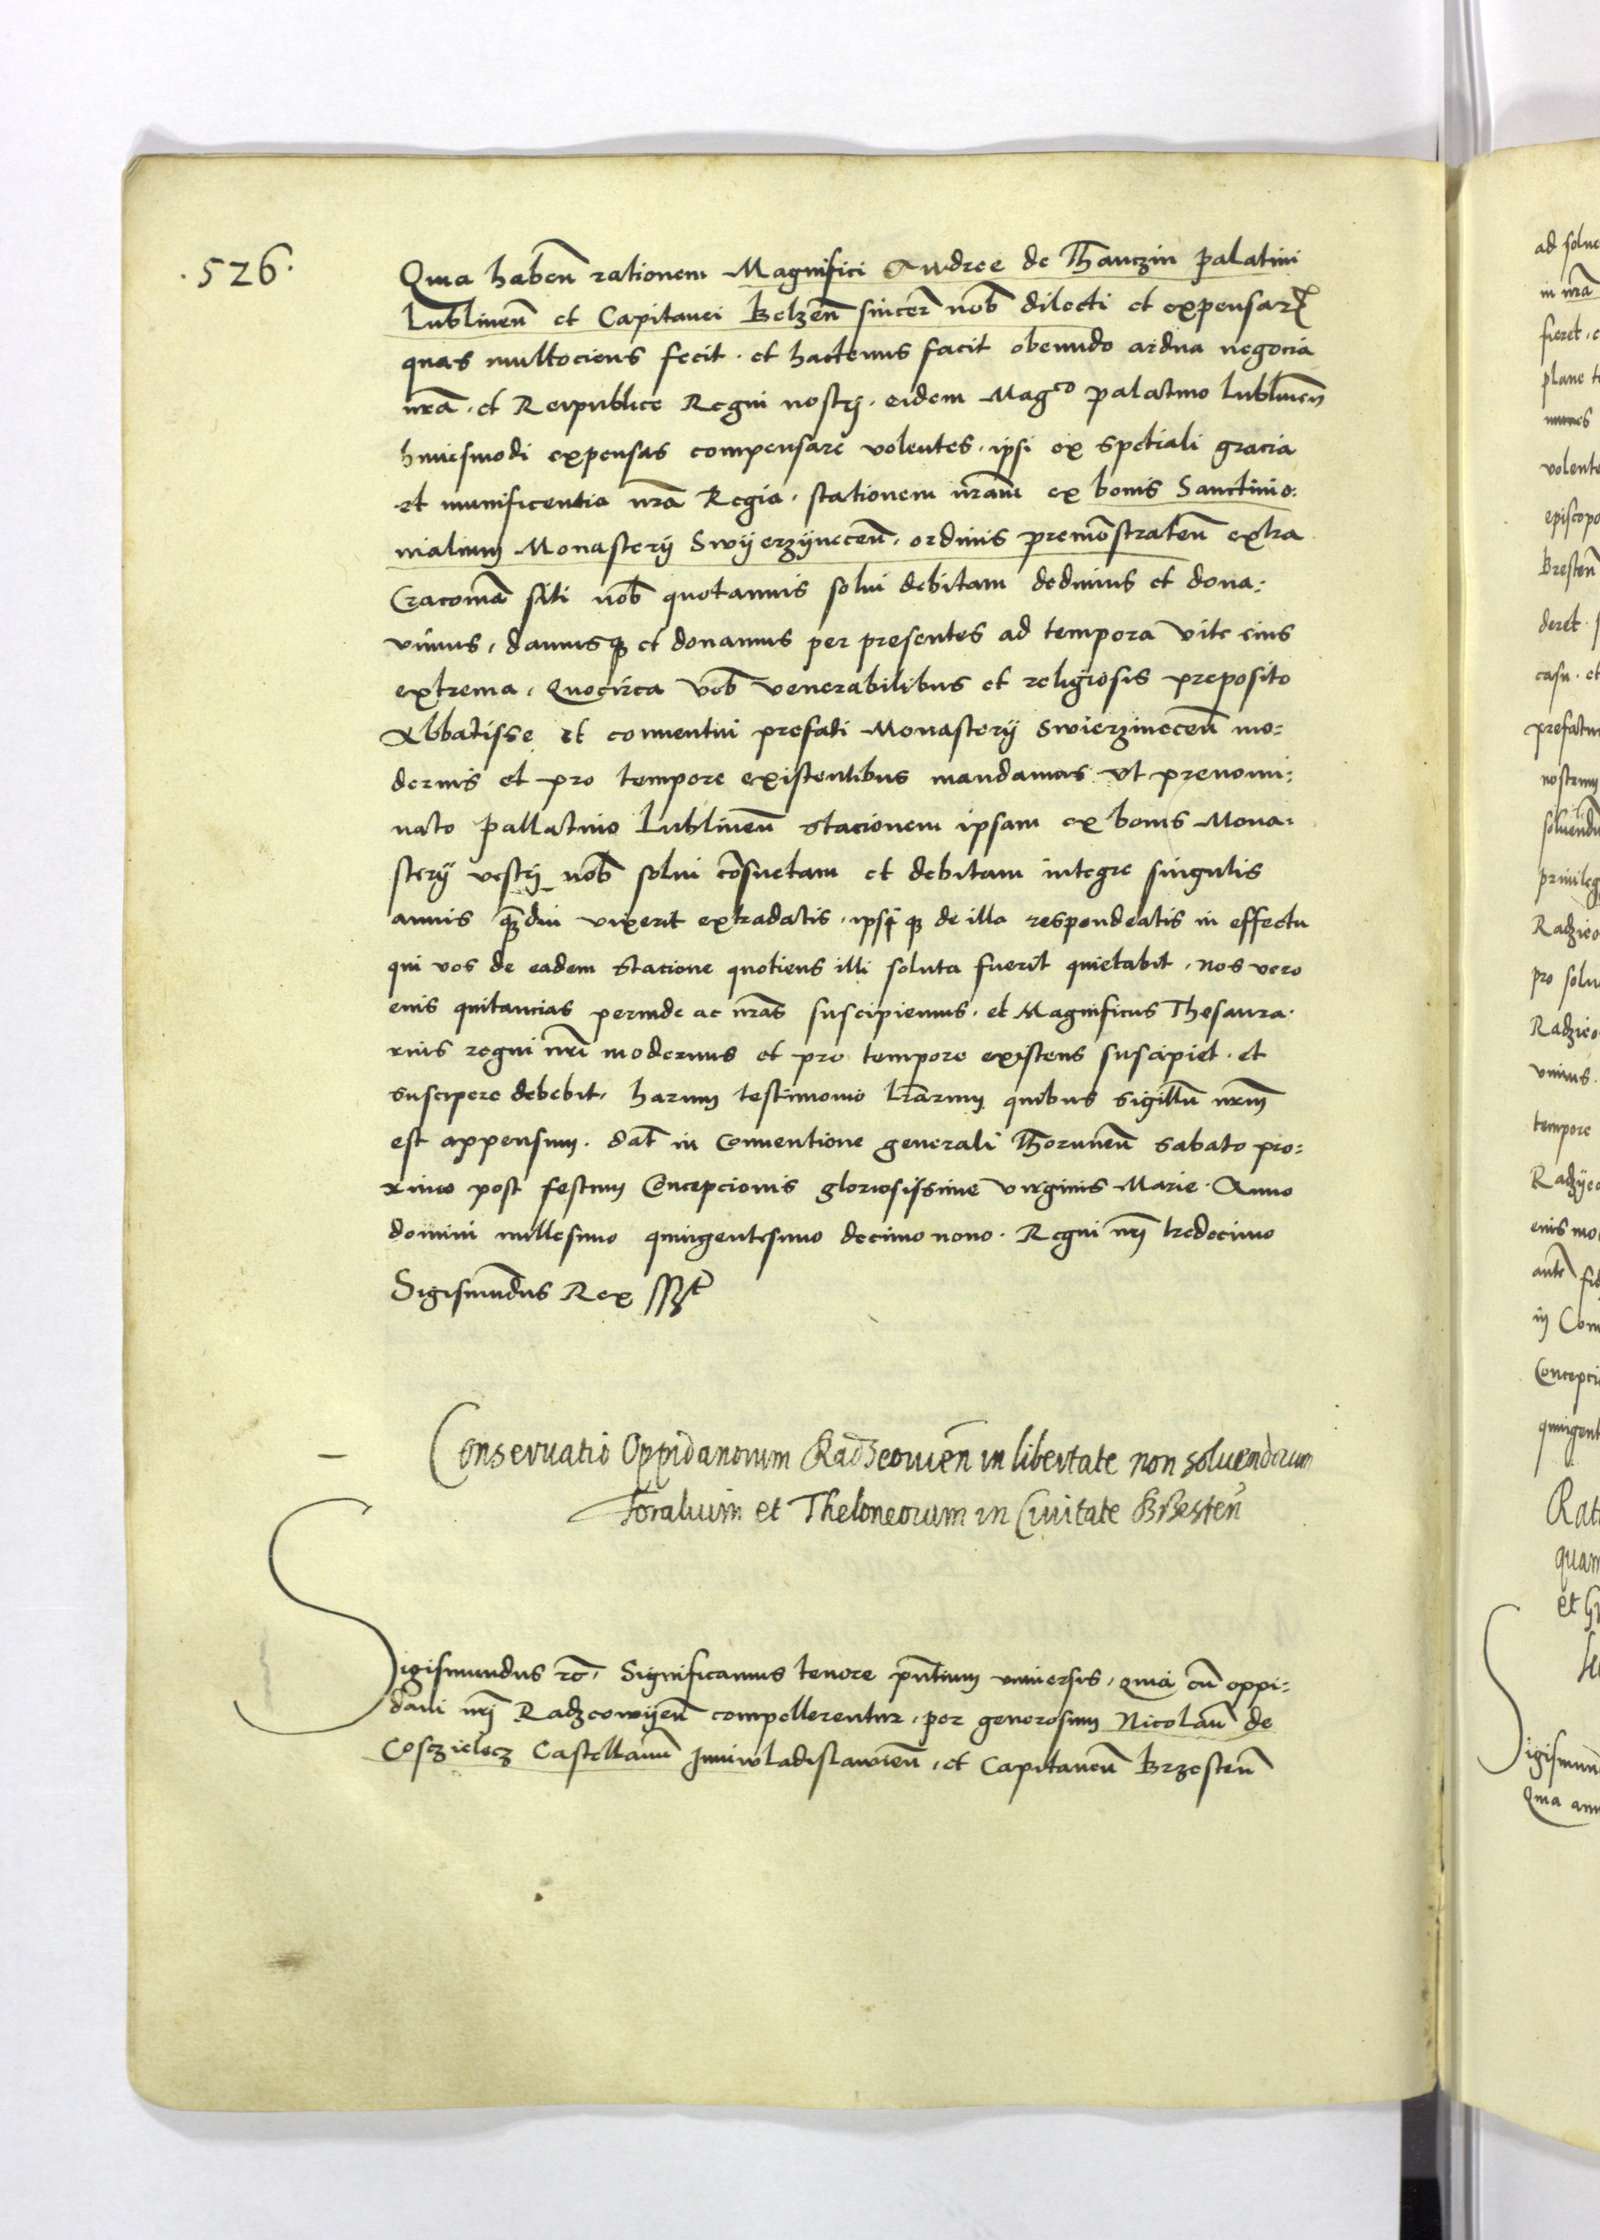 .526.
Quia haben̄ rationem Magnifici Andree de Thanczin palatini
Lublinen̄ et Capitanei Belzen̄ sincer̄ nob̄ dilecti et expensar̄
quas multociens fecit . et hactenus facit obeundo ardua negocia
nr̄a . et Reipublice Regni nostrj . eidem Mag^co palatino Lublinen̄
huiesmodi expensas compensare volentes . ipsi ex speciali gracia
et munificentia nr̄a Regia . stationem nr̄am ex bonis Sanctimo:
nialium Monasterij Swyerzyneceñ . ordinis premōstraten̄ extra
Cracouiā siti nob̄ quotannis solui debitam dedimus et dona:
uimus , damusq̨ et donamus per presentes ad tempora vite eius
extrema . Quocirca vob̄ venerabilibus et religiosis preposito
Abbatisse et conuentui prefati Monasterij Swierzinecen̄ mo:
dernis et pro tempore existentibus mandamus vt prenomi:
nato pallatino Lublinen̄ stacionem ipsam ex bonis Mona:
sterij vestrj nob̄ solui cōsuetam et debitam integre singulis
annis q̄diu vixerit extradatis . ipsiq̨ de illa respondeatis in effectu
qui vos de eadem stacione quotiens illi soluta fuerit quietabit . Nos vero
eius quitancias perinde ac nr̄as suscipiemus . et Magnificus Thesaura:
rius regni nr̄i modernus et pro tempore existens suscipiet . et
suscipere debebit . harum testimonio lr̄arum quibus sigillū nr̄m
est appensum . dat̄ in Conuentione generali Thorunen̄ sabato pro:
ximo post festum Concepcionis gloriosissime virginis Marie . Anno
domini millesimo quingentesimo decimo nono . Regni nr̄j tredecimo
Sigismūdus Rex sszt
Conseruatio Oppidanorum Radzeouien̄ in libertate non soluendorum
foralium et Theloneorum in Ciuitate Bresten̄
Sigismundus rc̄ . Significamus tenore pn̄tium vniuersis . Quia cū oppi:
dani nr̄j Radzeowyen̄ compellerentur . per generosum Nicolaū de
Cosczielecz Castellanū Juniwladislauien̄ . et Capitaneū Brzesten̄